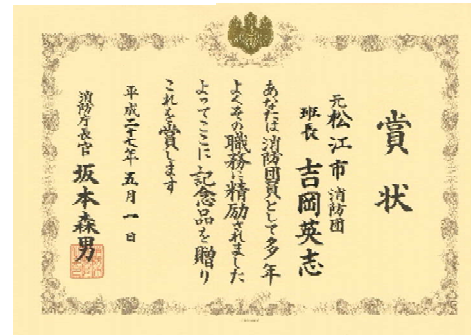 賞状
元松江市消防団
班長 吉岡英志
あなたは消防団員として多年
よくその職務に精励されました
よってここに記念品を贈り
これを賞します
平成二十七年五月一日
消防庁長官 坂本森男